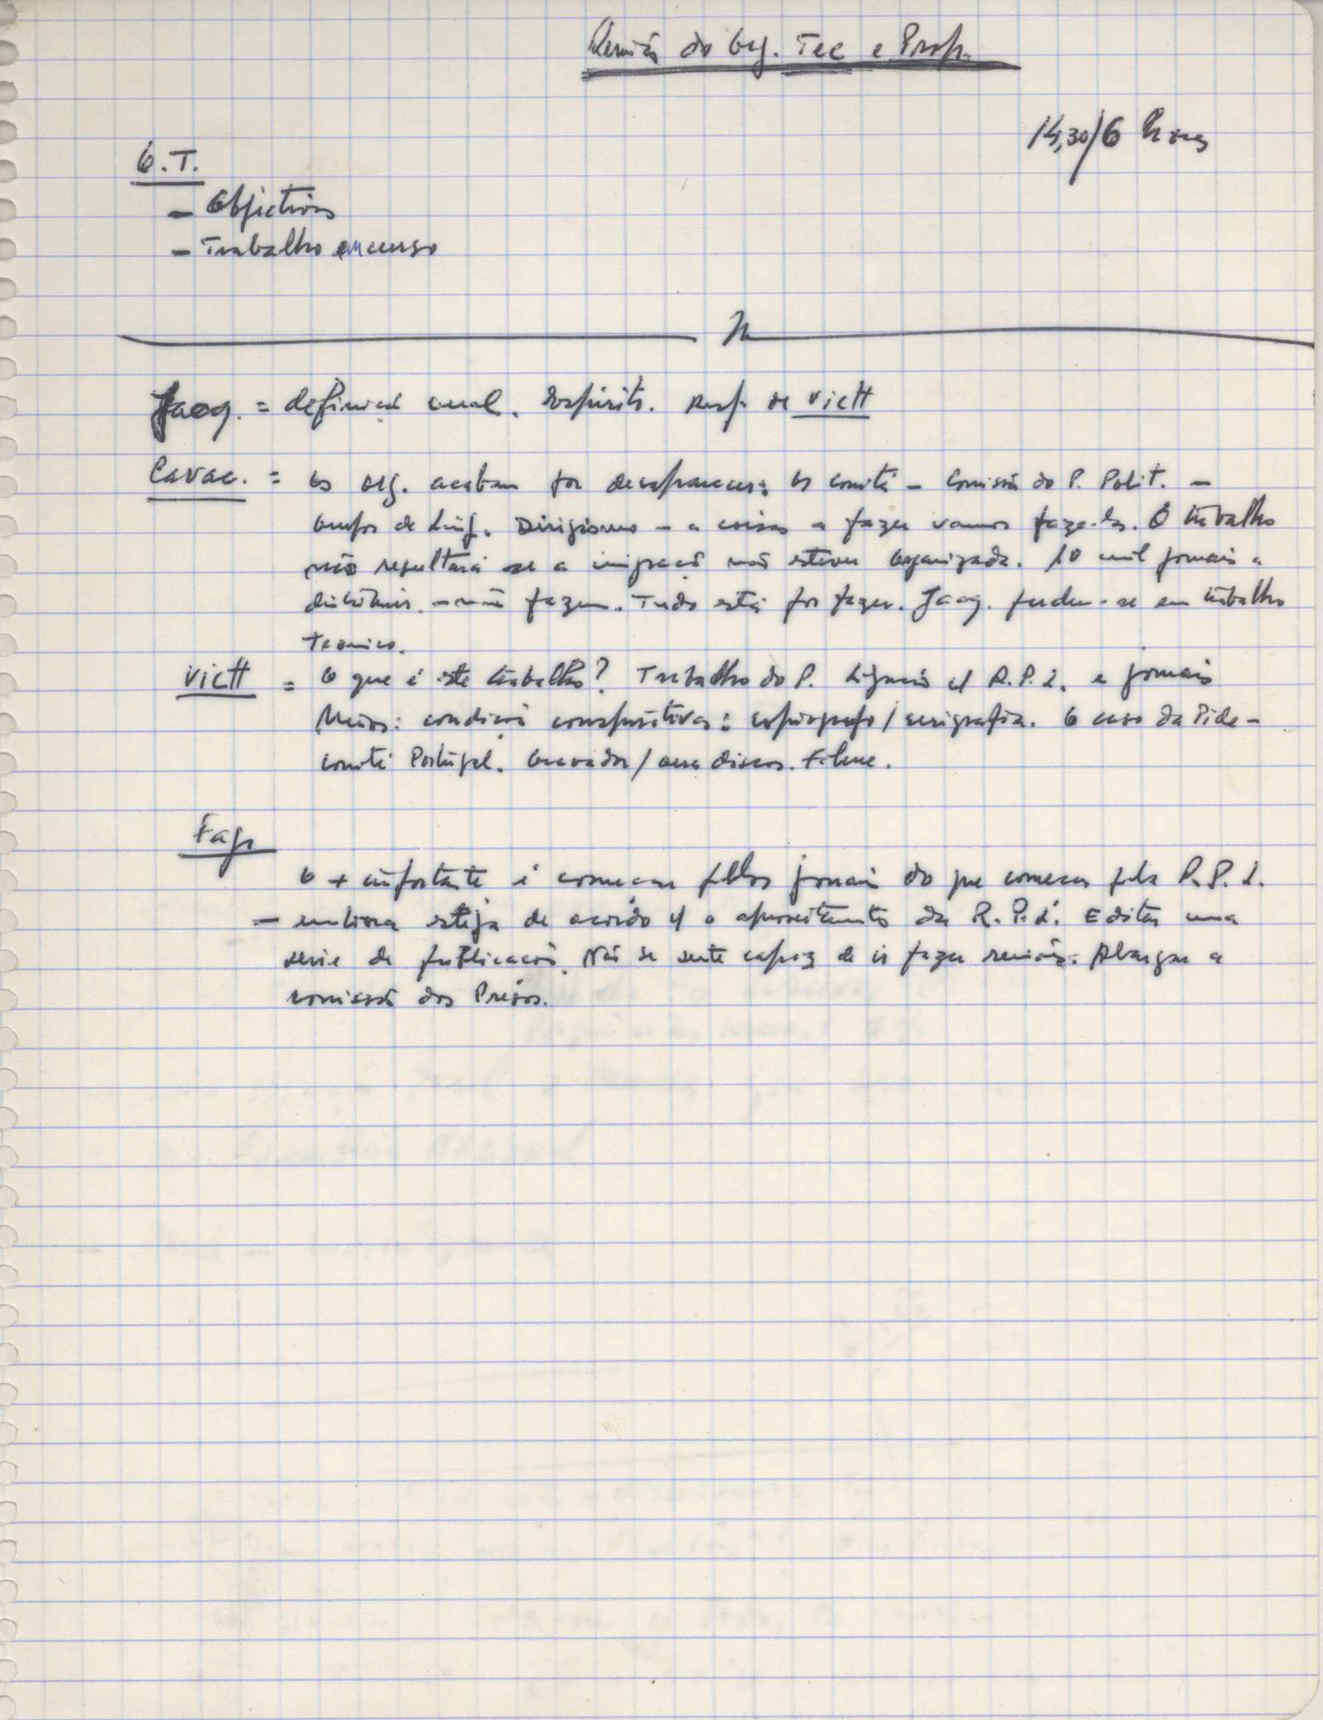 Reunião do Org. Tec e Prop.
14,30/6 horas
O.T.
- Objectivos
- Trabalho em curso
Jaoq. = definição Resp. de VicH
Cavac. = Os org. acabam por desaparecer: Os comité - Comissão do P. Polit. -
de Ling. Dirigismo - a coisas a fazer vamos faze-las. O trabalho
não resultará se a imigração não estiver organizada. 10 mil jornais a
distribuir. - não fazem. Tudo está por fazer. Jaoq. perdeu-se em trabalho
Tecnico.
VicH = O que é este trabalho? Trabalho do P. Ligação c/ R.P.L. e jornais
Meios: condições conspirativas: copiografo/serigrafia. O caso da Pide -
comité Portugal. Gravador/ discos. Filme.
Fag.
O + importante é começar pelos jornais do que começar pela R.P.L.
- embora esteja de acordo c/ o aproveitamento da R.P.L. Editar uma
serie de publicações. Não se sente capaz de ir fazer reuniões. Alargar a
comissão dos Presos.